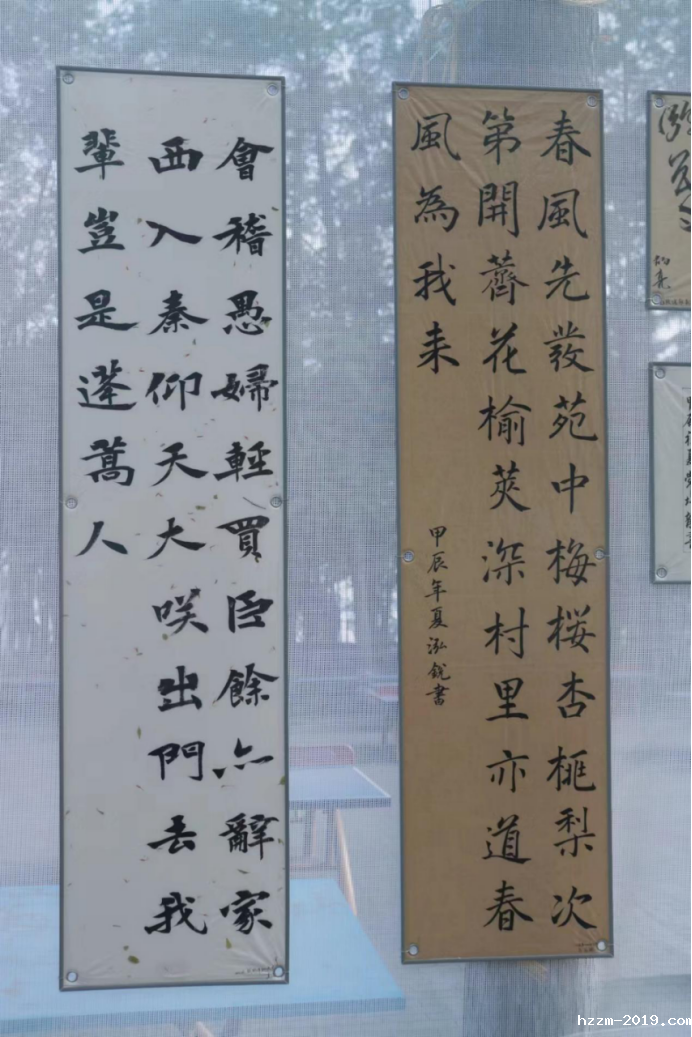 春風先發苑中梅桜杏桃梨次
第開薺花榆莢深村里亦道春
風為我来
甲辰年夏泓銳書
會稽愚婦輕買臣餘亦辭家
西入秦仰天大咲出門去我
輩豈是蓬蒿人
hzzm-2019.com